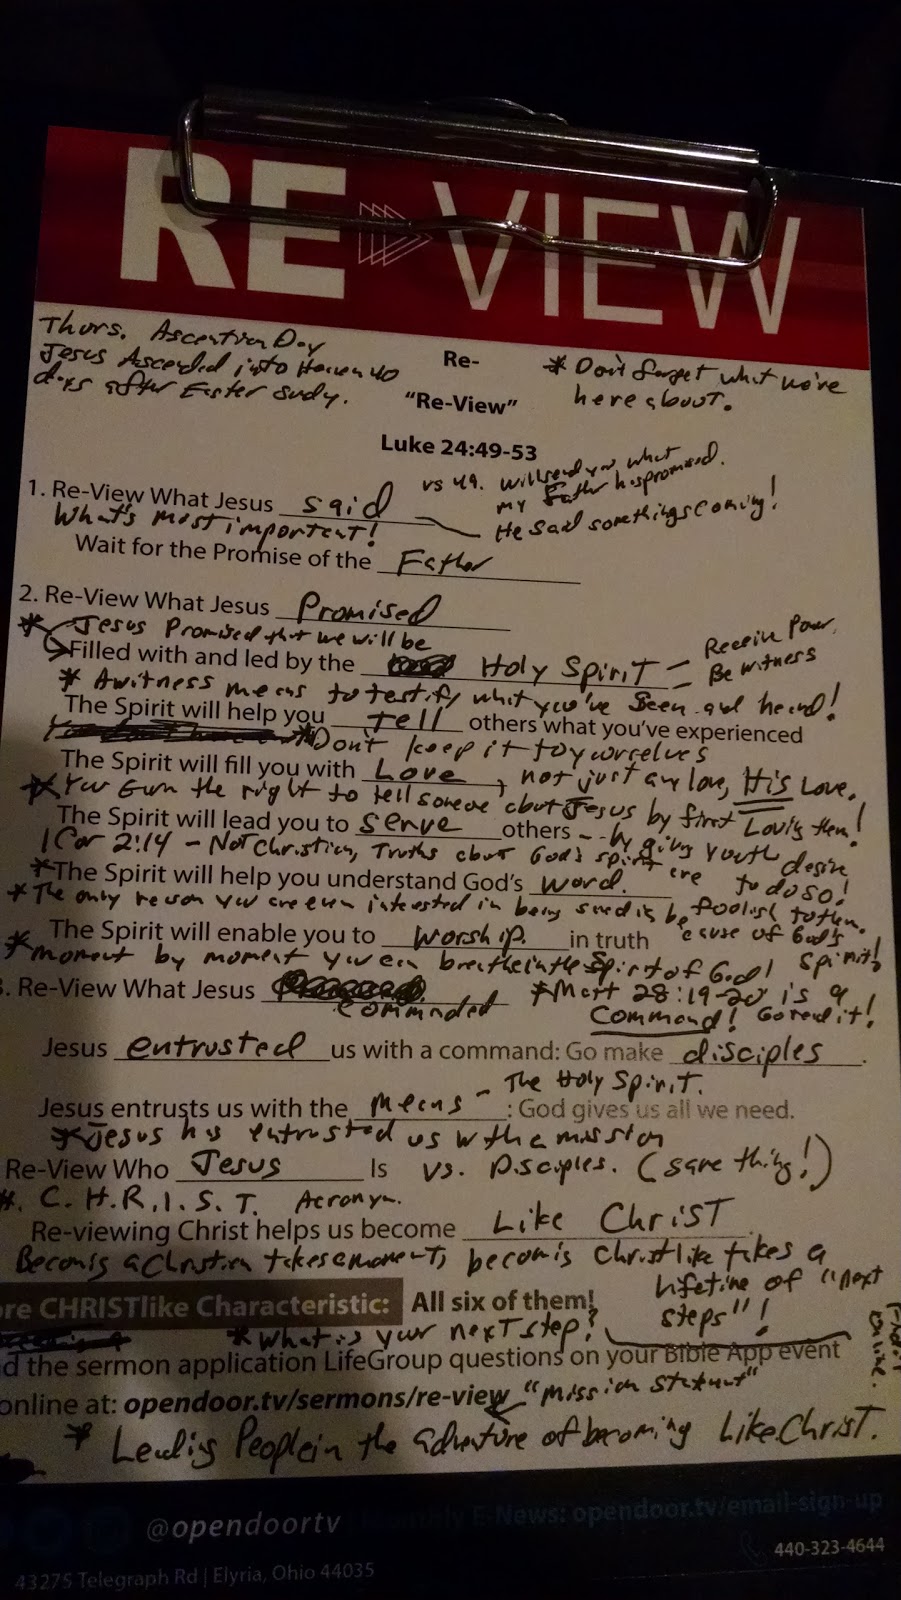 RE VIEW
Thurs. Ascention Day
Jesus Ascended into Heaven 40
days after Easter Sudy.
Re-
"Re-View"
* Don't forget what we're
here about.
Luke 24:49-53
vs 49. will send you what
my Father has promised.
He said something's coming!
1. Re-View What Jesus said
What's most important!
Wait for the Promise of the Father
2. Re-View What Jesus Promised
* Jesus Promised that we will be
Filled with and led by the Holy Spirit - Receive Power
- Be witness
* A witness means to testify what you've seen and heard!
The Spirit will help you tell others what you've experienced
* Don't keep it to yourselves
The Spirit will fill you with Love, not just any love, His Love.
* You Earn the right to tell someone about Jesus by first Loving them!
The Spirit will lead you to serve others - by giving you the desire
to do so!
1 Cor 2:14 - Not Christian, Truths about God's spirit are
foolish to them.
* The Spirit will help you understand God's word.
* The only reason you are even interested in being saved is be
cause of God's
Spirit!
The Spirit will enable you to worship. in truth
* moment by moment you can breathe in the Spirit of God!
3. Re-View What Jesus Commanded
* Matt 28:19-20 is a
Command! Go read it!
Jesus entrusted us with a command: Go make disciples.
Jesus entrusts us with the means - The Holy Spirit. : God gives us all we need.
* Jesus has entrusted us with a mission
Re-View Who Jesus Is vs. Disciples. (same thing!)
*. C.H.R.I.S.T. Acronym.
Re-viewing Christ helps us become Like Christ
Becoming a Christian takes a moment, becoming Christlike takes a
lifetime of "next
steps"!
ore CHRISTlike Characteristic: All six of them!
* What is your next step?
d the sermon application LifeGroup questions on your Bible App event
online at: opendoor.tv/sermons/re-view "mission statment"
* Leading People in the adventure of becoming Like Christ.
@opendoortv
Monthly E-News: opendoor.tv/email-sign-up
440-323-4644
43275 Telegraph Rd | Elyria, Ohio 44035